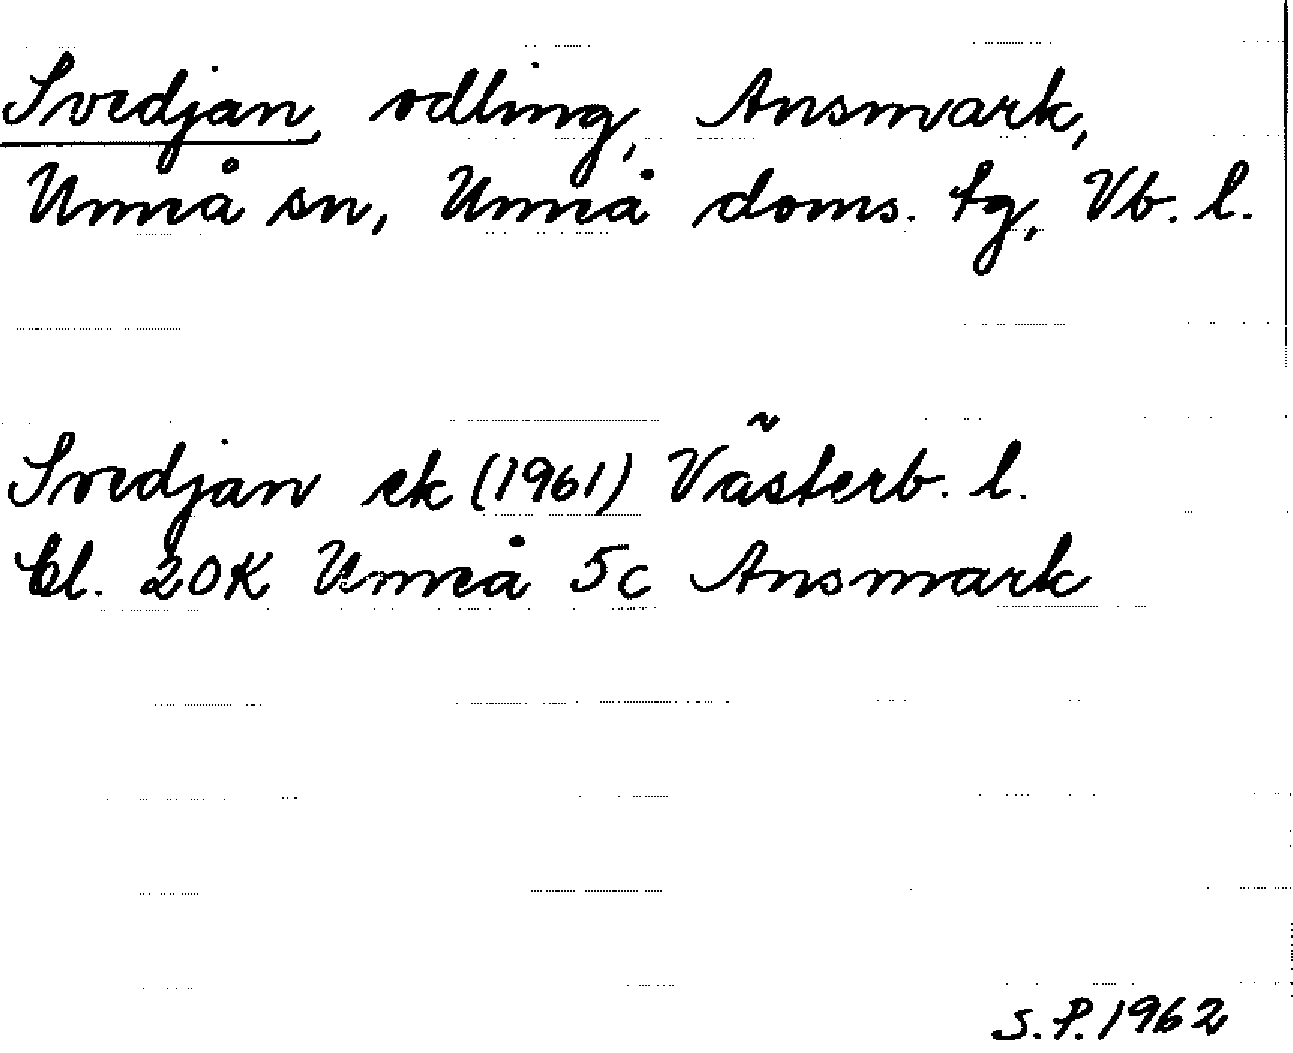 Svedjan, odling, Ansmark,
Umeå sn, Umeå doms. tg, Vb. l.
Svedjan ek (1961) Västerb. l.
Bl. 20K Umeå 5c Ansmark
S.P. 1962